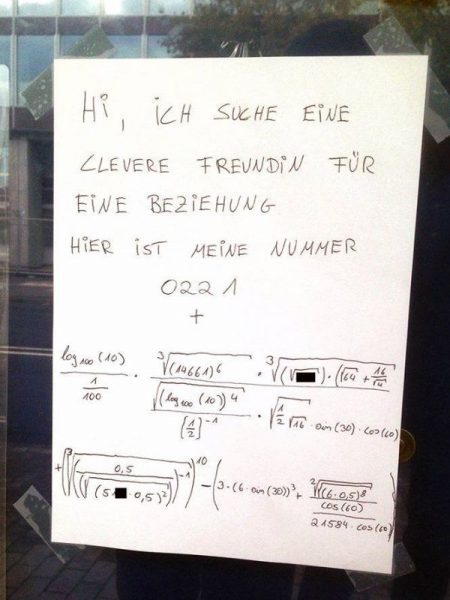 Hi, ICH SUCHE EINE
CLEVERE FREUNDIN FÜR
EINE BEZIEHUNG
HIER IST MEINE NUMMER
0221
+
log₁₀₀(10) / (1/100) · ∛(14661)⁶ / (√(log₁₀₀(10))⁴ / [1/2]⁻¹) · ∛((√) · (√64 + 16/√4)) / (√(1/2 √16) · sin(30) · cos(60))
0,5
· 0,5)²
)⁻¹ )¹⁰ − (3 · (6 · sin(30))³ + ²√((6 · 0,5)⁸ / cos(60)) / 21584 · cos(60))